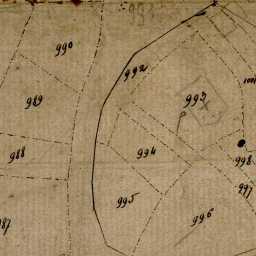 990
992
989
993
988
994
998
997
995
996